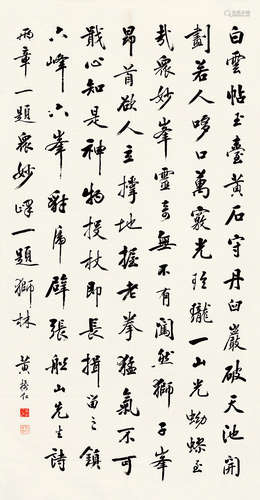 白雲帖玉臺黃石守丹臼巖破天池開
劃若人哆口萬竅光玲瓏一山光蚴蟉玉
氣眾妙峯靈奇無不有闖然獅子峯
昂首欲人立撐地握老拳猛氣不可
戢心知是神物投杖即長揖留之鎮
六峰六峯辟席 張船山先生詩
兩章一題眾妙峰一題獅林 黃